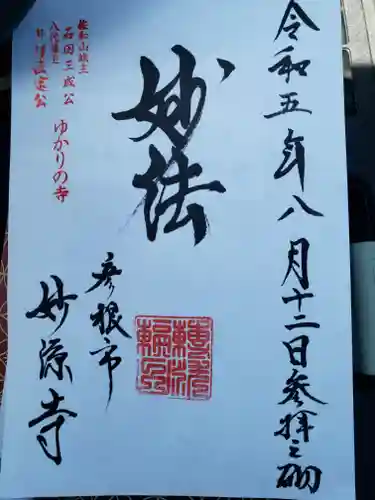 令和五年八月十二日参拝之砌
妙法
佐和山城主
石田三成公
八代藩主
井伊直定公
ゆかりの寺
彦根市
妙源寺